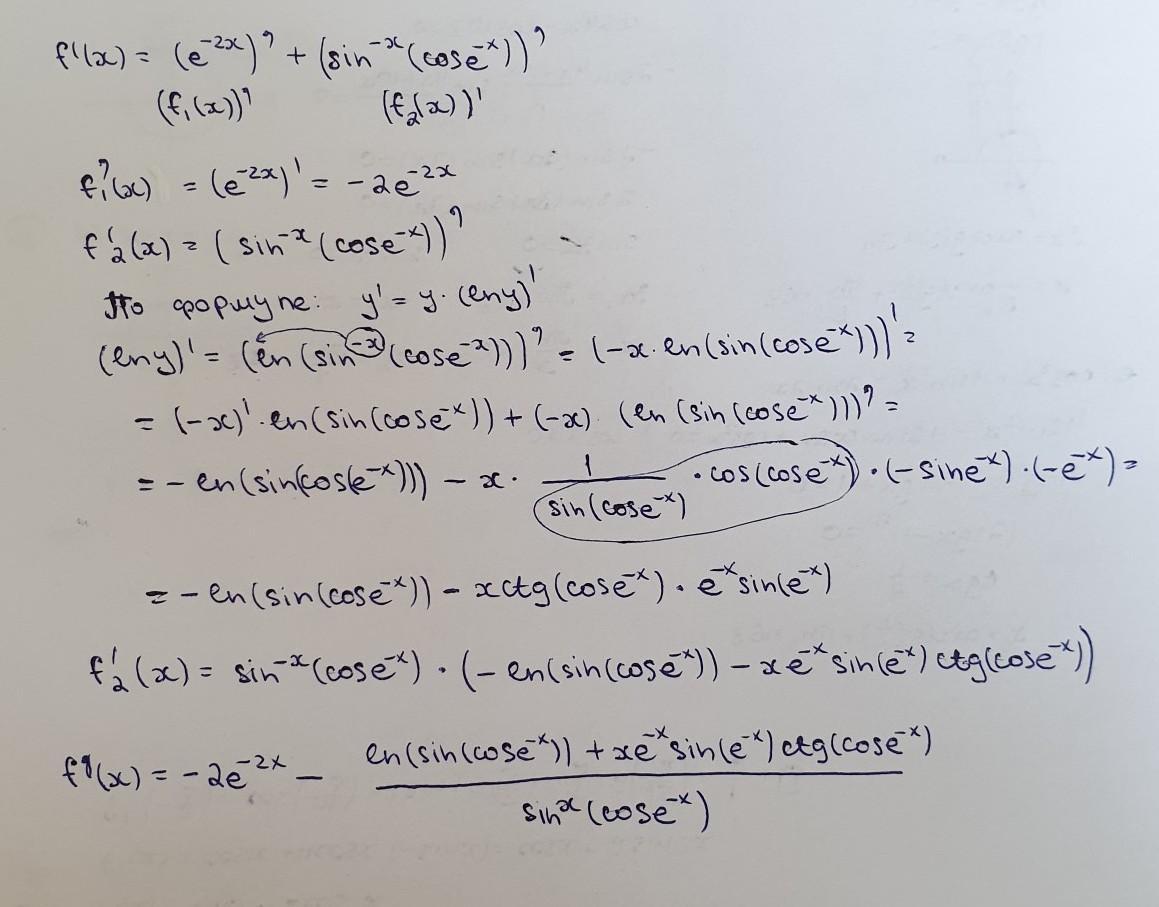 f'(x) = (e^{-2x})' + (sin^{-x}(cose^{-x}))'
(f₁(x))' (f₂(x))'
f₁'(x) = (e^{-2x})' = -2e^{-2x}
f₂'(x) = (sin^{-x}(cose^{-x}))'
По формуле: y' = y · (lny)'
(lny)' = (ln(sin^{-x}(cose^{-x})))' = (-x · ln(sin(cose^{-x})))' =
= (-x)' · ln(sin(cose^{-x})) + (-x) · (ln(sin(cose^{-x})))' =
= - ln(sin(cos(e^{-x}))) - x · 1/sin(cose^{-x}) · cos(cose^{-x}) · (-sine^{-x}) · (-e^{-x}) =
= - ln(sin(cose^{-x})) - xctg(cose^{-x}) · e^{-x}sin(e^{-x})
f₂'(x) = sin^{-x}(cose^{-x}) · (- ln(sin(cose^{-x})) - xe^{-x}sin(e^{-x})ctg(cose^{-x}))
f'(x) = -2e^{-2x} - (ln(sin(cose^{-x})) + xe^{-x}sin(e^{-x})ctg(cose^{-x}))/(sin^{x}(cose^{-x}))